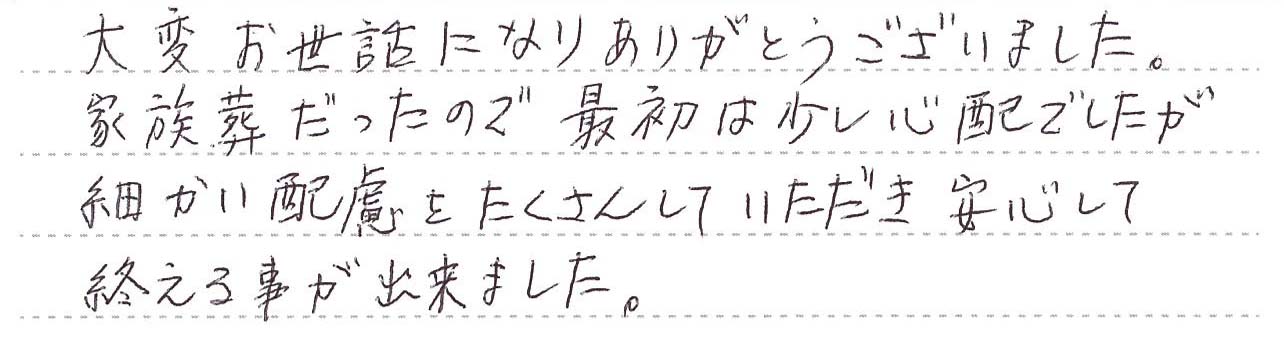 大変お世話になりありがとうございました。
家族葬だったので最初は少し心配でしたが
細かい配慮をたくさんしていただき安心して
終える事が出来ました。